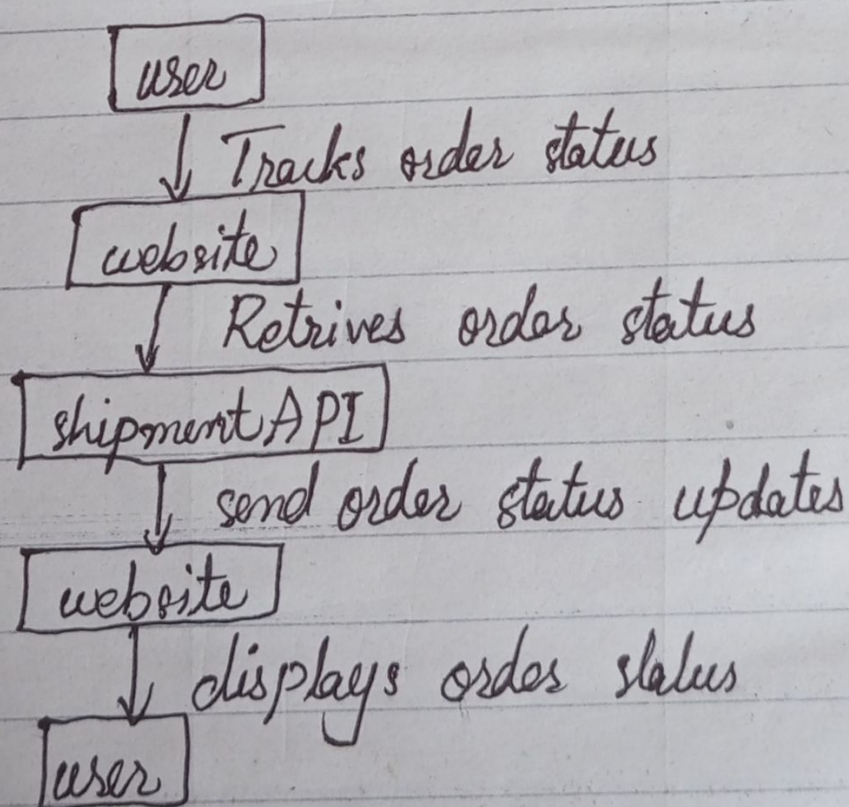 user
Tracks order status
website
Retrives order status
shipment API
send order status updates
website
displays order status
user